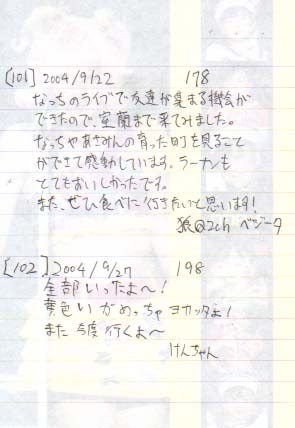 [101] 2004/9/22 178
なっちのライブで友達が集まる機会が
できたので、室蘭まで来てみました。
なっちやあさみんの育った町を見ること
ができて感動しています。ラーナンも
とてもおいしかったです。
また、ぜひ食べに行きたいと思います!
狼@2ch ベジータ
[102] 2004/9/27 198
全部いったよ〜!
黄色いがめっちゃヨカッタよ!
また今度行くよ〜
けんちゃん